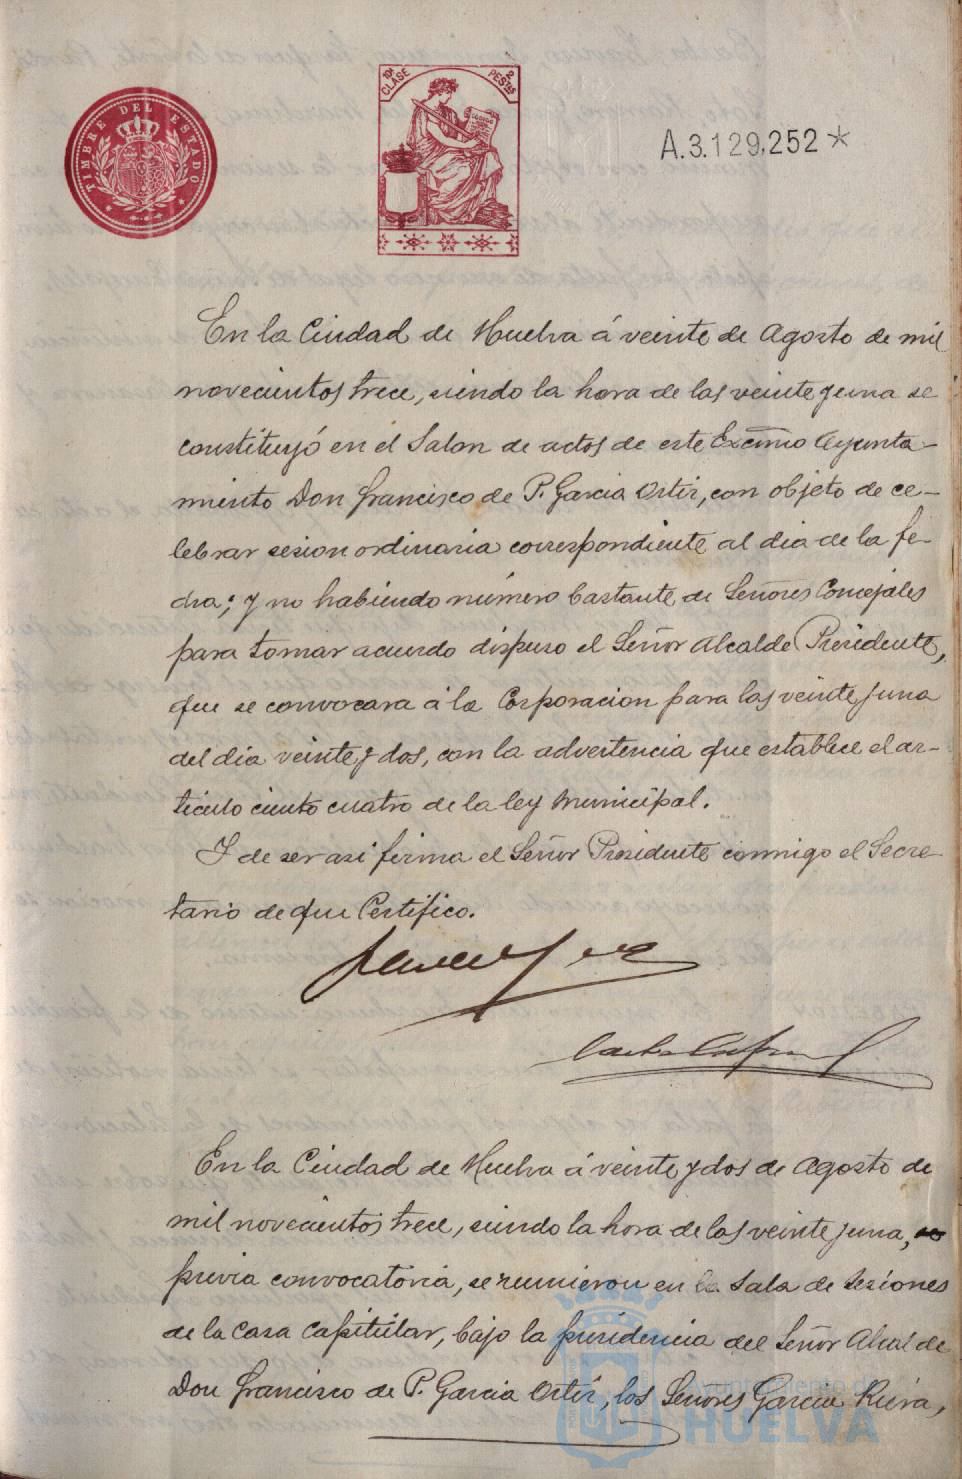 TIMBRE DEL ESTADO
10ª CLASE 2 PESTAS
A.3.129,252*
En la Ciudad de Huelva á veinte de Agosto de mil
novecientos trece, siendo la hora de las veinte y una se
constituyó en el Salon de actos de este Excmo Ayunta-
miento Don Francisco de P. Garcia Ortiz, con objeto de ce-
lebrar sesion ordinaria correspondiente al dia de la fe-
cha; y no habiendo número bastante de Señores Concejales
para tomar acuerdo dispuso el Señor Alcalde Presidente,
que se convocara á la Corporacion para las veinte y una
del dia veinte y dos, con la advertencia que establece el ar-
ticulo ciento cuatro de la ley Municipal.
Y de ser asi firma el Señor Presidente conmigo el Secre-
tario de que Certifico.
En la Ciudad de Huelva á veinte y dos de Agosto de
mil novecientos trece, siendo la hora de las veinte y una,
previa convocatoria, se reunieron en la Sala de Sesiones
de la Casa Capitular, bajo la presidencia del Señor Alcalde
Don Francisco de P. Garcia Ortiz, los Señores Garcia Riera,
Ayuntamiento de
HUELVA